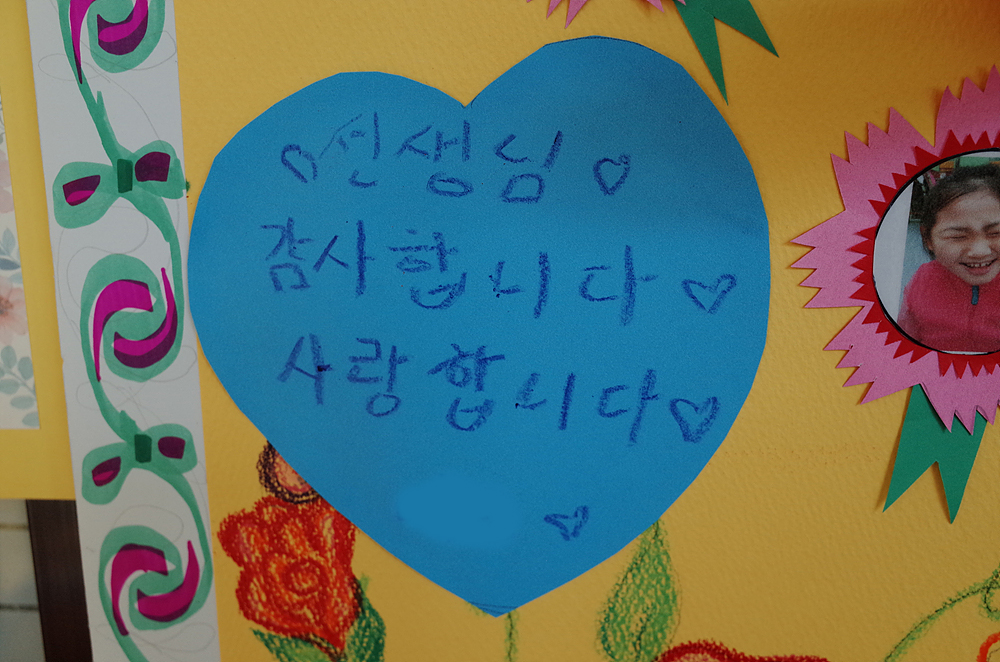 선생님♡
감사합니다♡
사랑합니다♡